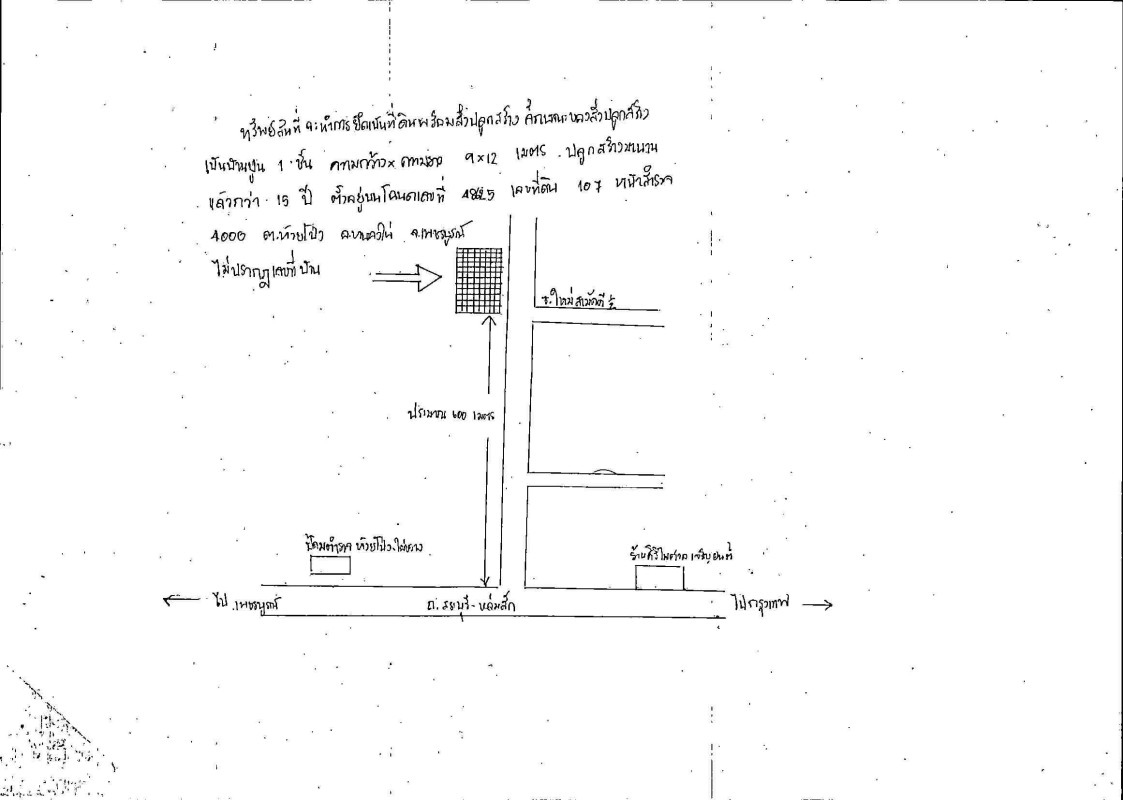 ทรัพย์สินที่จะทำการยึดเป็นที่ดินพร้อมสิ่งปลูกสร้าง ลักษณะของสิ่งปลูกสร้าง
เป็นบ้านปูน 1 ชั้น ความกว้าง x ความยาว 9x12 เมตร ปลูกสร้างมานาน
แล้วกว่า 15 ปี ตั้งอยู่บนโฉนดเลขที่ เลขที่ดิน 107 หน้าสำรวจ
4000 ต.ห้วยโป่ง อ.หนองไผ่ จ.เพชรบูรณ์
ไม่ปรากฏเลขที่บ้าน
ซ.ใหม่สามัคคี
ประมาณ 600 เมตร
ป้อมตำรวจ ห้วยโป่ง-ไผ่ขวาง
ร้านศิริไพศาล เจริญยนต์
ไป เพชรบูรณ์
ถ.สระบุรี-หล่มสัก
ไปกรุงเทพฯ